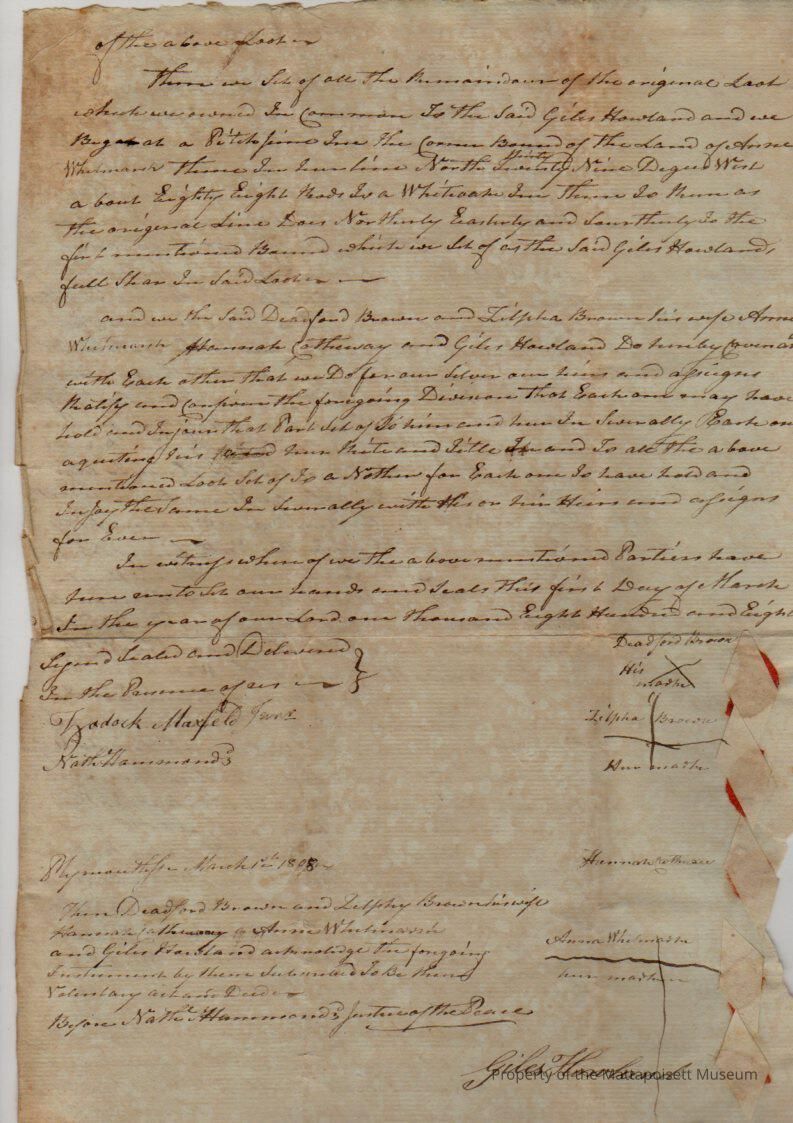 of the above Loot
Then we Set of all the Remaindour of the original Loot
which we owned In Common To the Said Giles Howland and we
Began at a Pitch pine Tree the Corner Bound of the Land of Anne
Whitmarsh thence In hur line North thirty Nine Degrees West
a bout Eighty Eight Rods To a Whiteoake Tree Thence To Run as
the origenal Line Does Northerly Easterly and Southerly To the
first mentioned Bound which we Set of as the Said Giles Howlands
full Shar In Said Loot
and we the Said Deadford Brown and Zilpha Brown his wife Anne
Whitmarsh Hannah Catheway and Giles Howland Do hereby Covenant
with Each other that we Do for our Selves our heirs and assigns
Ratify and Confirm the foregoing Division That Each one may have
hold and Injoy that Part Set of To him and hur In Severally Each one
aquiting his hur Rite and Title and To all the above
mentioned Loot Set of To a Nother for Each one To have hold and
Injoy the Same In Severally with His or hur Heirs and assigns
for Ever
In witness where of we the above mentioned Partiers have
here unto Set our hands and Seals this first Day of March
In the year of our Lord one thousand Eight Hundred and Eight
Signd Sealed and Delivered
In the Presence of us
Deadford Brown
His marke
Zadock Maxfeld Junr
Zilpha Brown
Nathl Hammond
Hur marke
Plymouth ss March 1st 1808
Hannah Cathewae
Then Deadford Brown and Zilphy Brown his wife
Hannah Catheway & Anne Whitmarsh
and Giles Howland acknolidge the forgoing
Instrument by them Subscribed To Be there
Voluntary act and Deed
Anna Whitmarsh
hur marke
Before Nathl Hammond Justice of the Peace
Giles Howland
Property of the Mattapoisett Museum